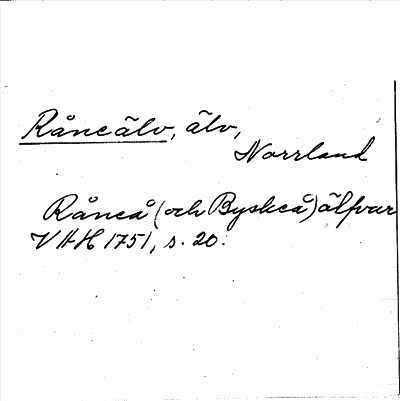 Råneälv, älv,
Norrland
Råneå (och Byskeå) älfvar
VAH 1751, s. 20.